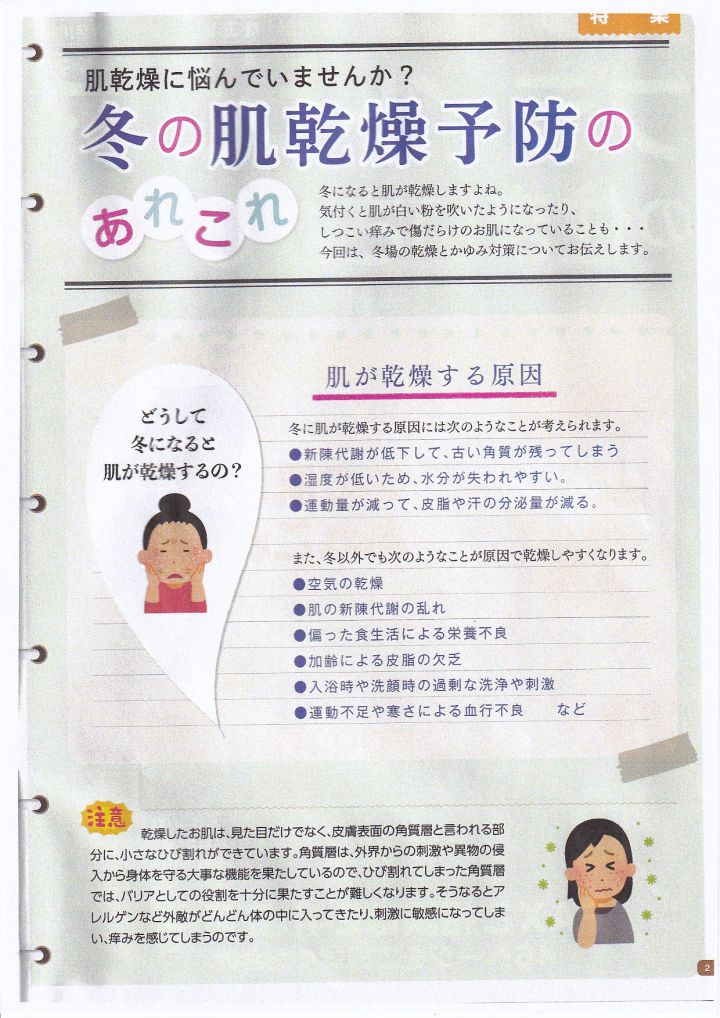 特集
肌乾燥に悩んでいませんか？
冬の肌乾燥予防の
あれこれ
冬になると肌が乾燥しますよね。
気付くと肌が白い粉を吹いたようになったり、
しつこい痒みで傷だらけのお肌になっていることも・・・
今回は、冬場の乾燥とかゆみ対策についてお伝えします。
どうして
冬になると
肌が乾燥するの？
肌が乾燥する原因
冬に肌が乾燥する原因には次のようなことが考えられます。
●新陳代謝が低下して、古い角質が残ってしまう
●湿度が低いため、水分が失われやすい。
●運動量が減って、皮脂や汗の分泌量が減る。
また、冬以外でも次のようなことが原因で乾燥しやすくなります。
●空気の乾燥
●肌の新陳代謝の乱れ
●偏った食生活による栄養不良
●加齢による皮脂の欠乏
●入浴時や洗顔時の過剰な洗浄や刺激
●運動不足や寒さによる血行不良　　など
注意
乾燥したお肌は、見た目だけでなく、皮膚表面の角質層と言われる部
分に、小さなひび割れができています。角質層は、外界からの刺激や異物の侵
入から身体を守る大事な機能を果たしているので、ひび割れてしまった角質層
では、バリアとしての役割を十分に果たすことが難しくなります。そうなるとア
レルゲンなど外敵がどんどん体の中に入ってきたり、刺激に敏感になってしま
い、痒みを感じてしまうのです。
2